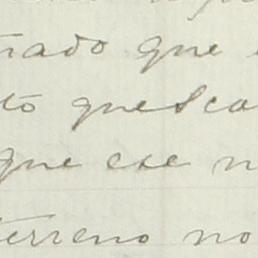 rado que
to que sea
que ese n
terreno no